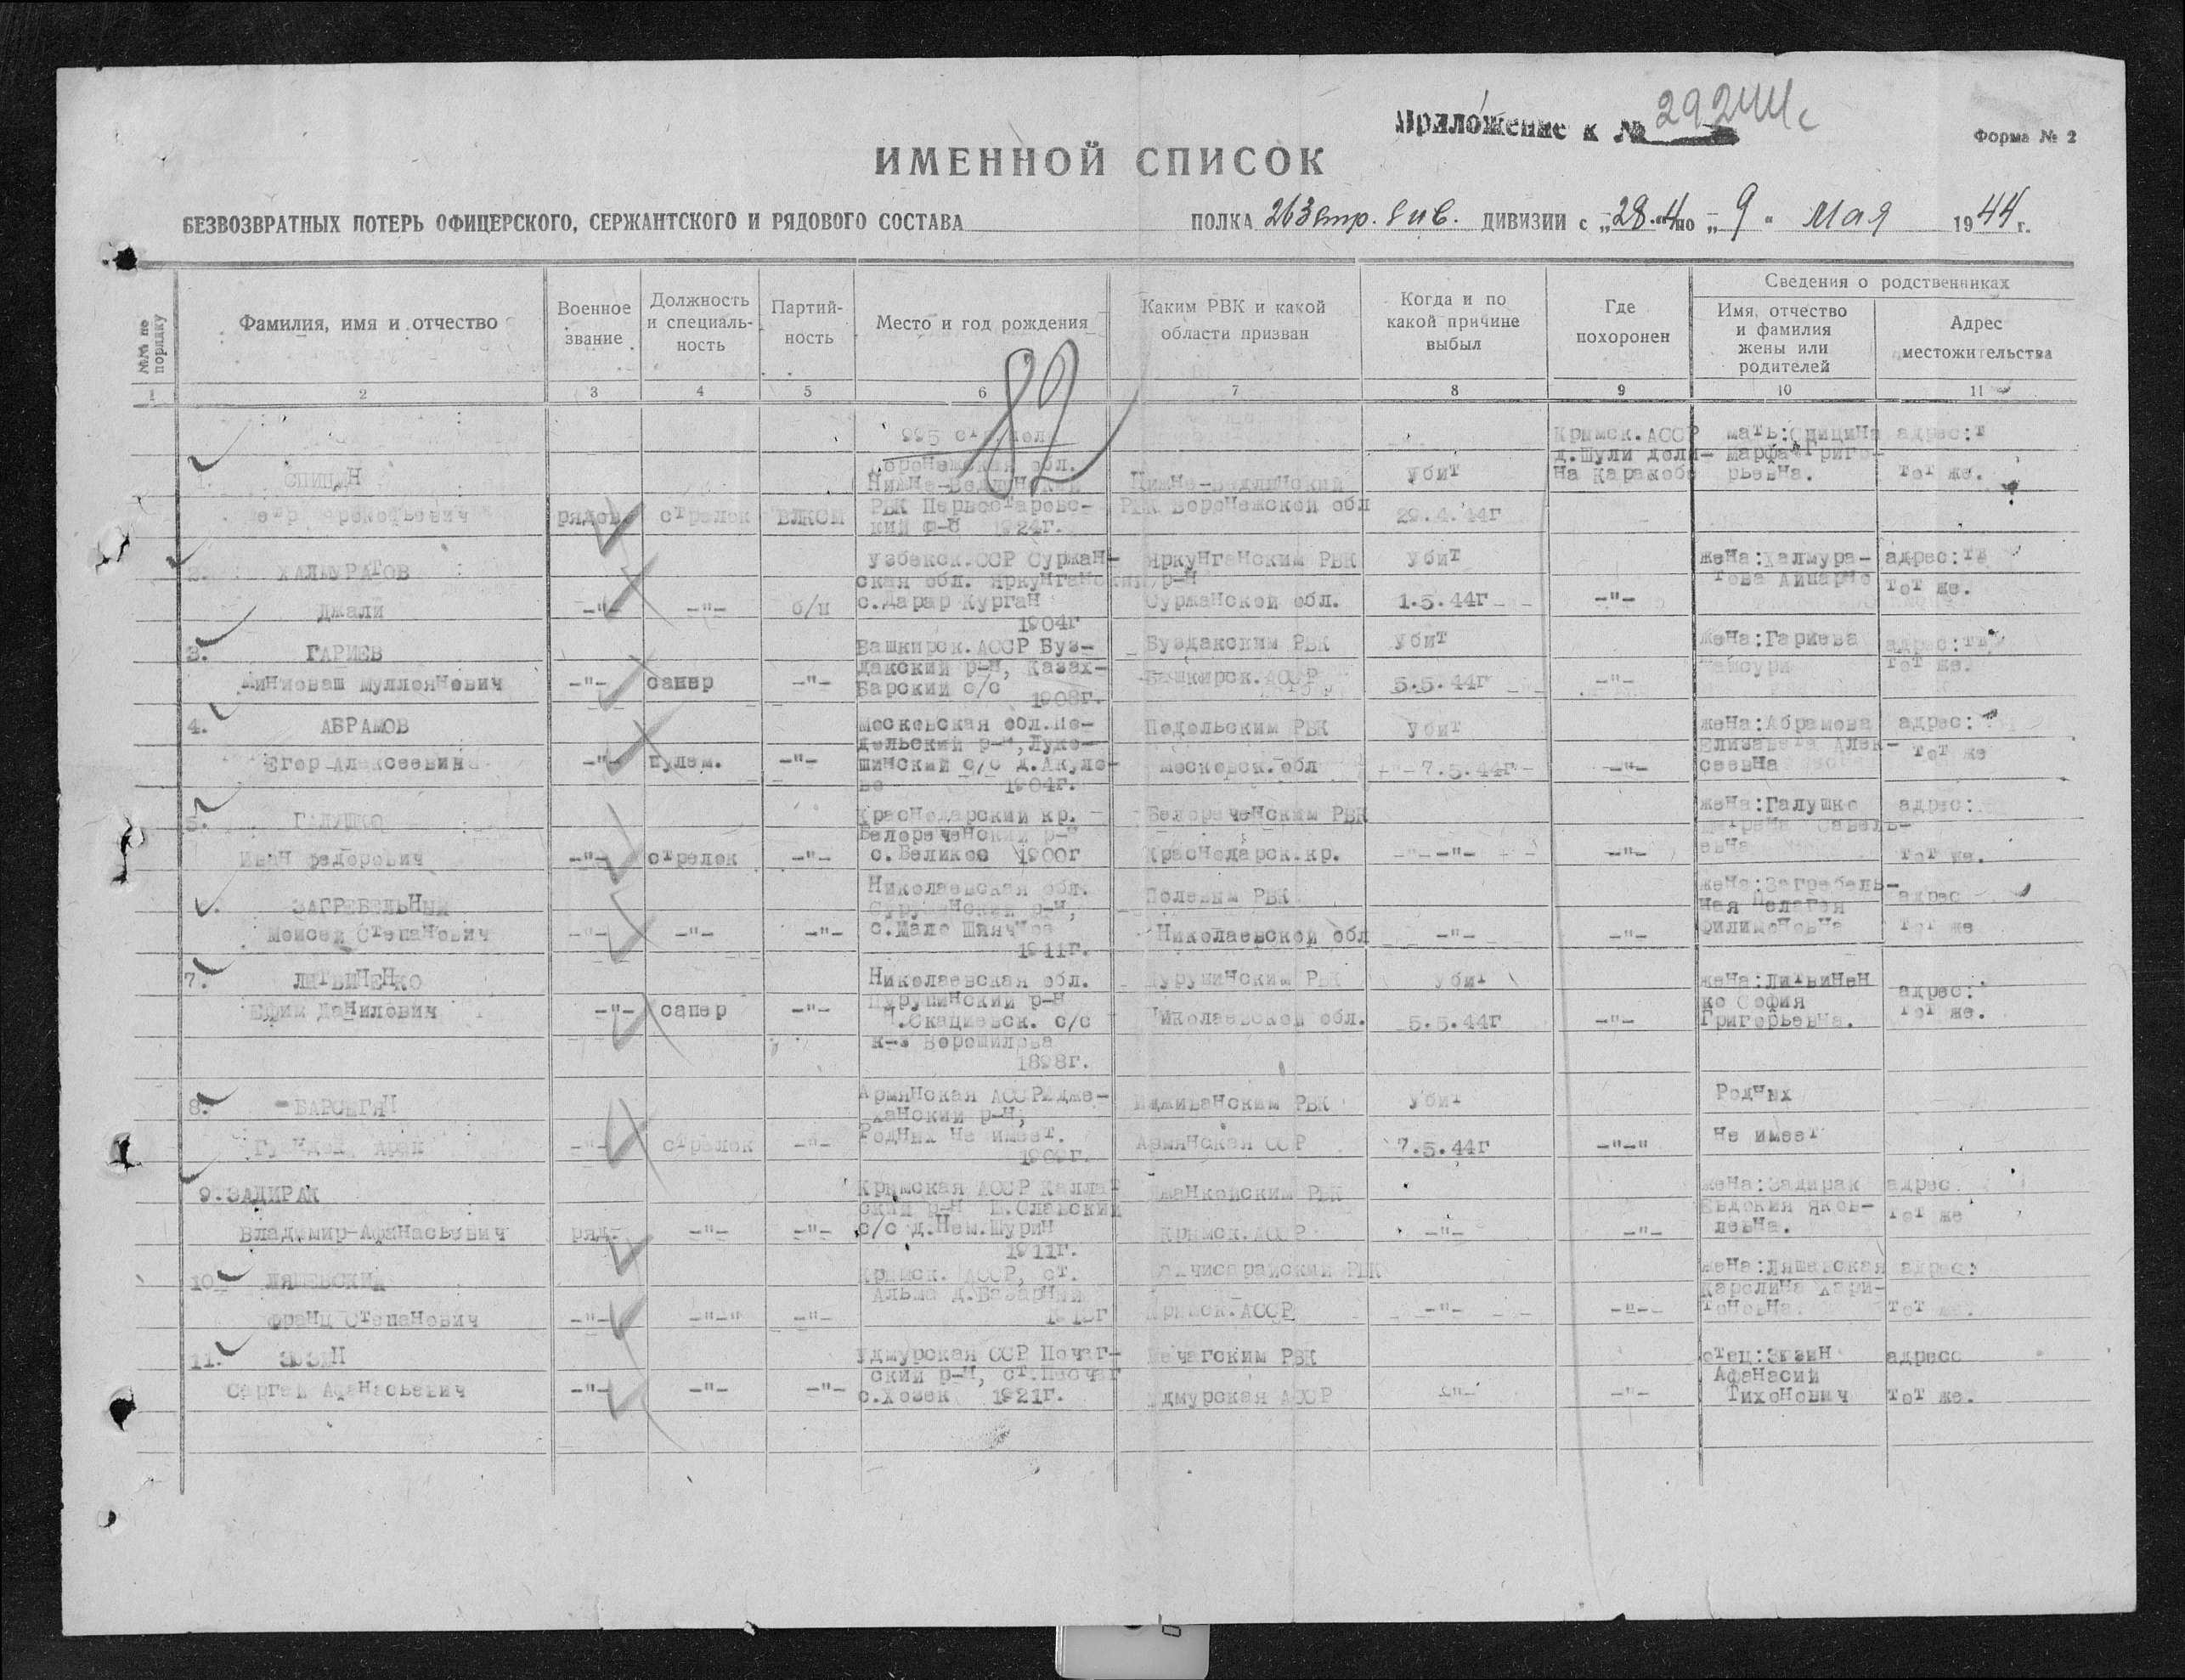 Приложение к № 29244с
Форма № 2
ИМЕННОЙ СПИСОК
БЕЗВОЗВРАТНЫХ ПОТЕРЬ ОФИЦЕРСКОГО, СЕРЖАНТСКОГО И РЯДОВОГО СОСТАВА ПОЛКА 263 стр. див. ДИВИЗИИ с „28.4 по „9" Мая 1944 г.
№№ по порядку
Фамилия, имя и отчество
Военное звание
Должность и специальность
Партийность
Место и год рождения
Каким РВК и какой области призван
Когда и по какой причине выбыл
Где похоронен
Сведения о родственниках
Имя, отчество и фамилия жены или родителей
Адрес местожительства
1 2 3 4 5 6 7 8 9 10 11
82
995 стр.
1. СПИЦИН
рядов. стрелок ВЛКСМ
Воронежская обл.
РВК Первостаровс-
кий р-н 1924г.
РВК Воронежской обл
убит
29.4.44г
Крымск.АССР
д.Шули доли-
на
мать:Спицина
Марфа Григо-
рьевна.
адрес:т
тот же.
2. ХАЛМУРАТОВ
Джали
-"- -"- б/п
Узбекск.ССР Суржан-
ская обл. Яркунганский р-н
с.Дарар Курган
1904г
Яркунганским РВК
Суржанской обл.
убит
1.5.44г
-"-
жена:Халмура-
това
адрес:
тот же.
3. ГАРИЕВ
Миниоваш Муллоянович
-"- сапер -"-
Башкирск.АССР Буз-
дакский р-н, Казах-
Барский с/с
1908г.
Буздакским РВК
Башкирск.АССР
убит
5.5.44г
-"-
жена:Гариева
адрес:
тот же.
4. АБРАМОВ
Егор Алексеевич
-"- пулем. -"-
Московская обл.По-
дольский р-н,Луко-
шинский с/с д.Акуло-
во 1904г.
Подольским РВК
Московск.обл
убит
7.5.44г
-"-
жена:Абрамова
Елизавета Алек-
сеевна
адрес:
тот же
5. ГАЛУШКО
Иван Федорович
-"- стрелок -"-
Краснодарский кр.
Белореченский р-н
с.Великое 1900г
Белореченским РВК
Краснодарск.кр.
-"- -"-
-"-
жена:Галушко
Савель-
евна
адрес:
тот же.
ЗАГРЕБЕЛЬНЫЙ
Моисей Степанович
-"- -"- -"-
Николаевская обл.
с.Мало
1911г.
Полевым РВК
Николаевской обл
-"-
-"-
жена:Загребель-
ная Пелагея
Филимоновна
адрес
тот же
7. ЛИТВИНЕНКО
Ефим Данилович
-"- сапер -"-
Николаевская обл.
р-н
с/с
к-з Ворошилова
1898г.
РВК
Николаевской обл.
убит
5.5.44г
-"-
жена:Литвинен
ко София
Григорьевна.
адрес:
тот же.
8. БАРСЕГЯН
-"- стрелок -"-
Армянская АССР Идже-
ванский р-н,
Родных не имеет.
Иджеванским РВК
Армянская ССР
убит
7.5.44г
-"-"
Родных
не имеет
9. ЗАДИРАК
Владимир Афанасьевич
ряд. -"- -"-
Крымская АССР
с/с д.Нем.Шурин
1911г.
Джанкойским РВК
Крымск.АССР
-"-
-"-
жена:Задирак
Евдокия Яков-
левна.
адрес
тот же
10. ЛЯШЕВСКИЙ
Франц Степанович
-"- -"-" -"-
Крымск. АССР, ст.
Альма д.Базарный
РВК
Крымск.АССР
-"-
-"-
жена:Ляшевская
Каролина Хари-
тоновна.
адрес:
тот же.
11. ЗЮЗИН
Сергей Афанасьевич
-"- -"- -"-
Удмурская ССР
с.Хозек 1921г.
РВК
Удмурская АССР
-"-
-"-
отец:Зюзин
Афанасий
Тихонович
адресс
тот же.